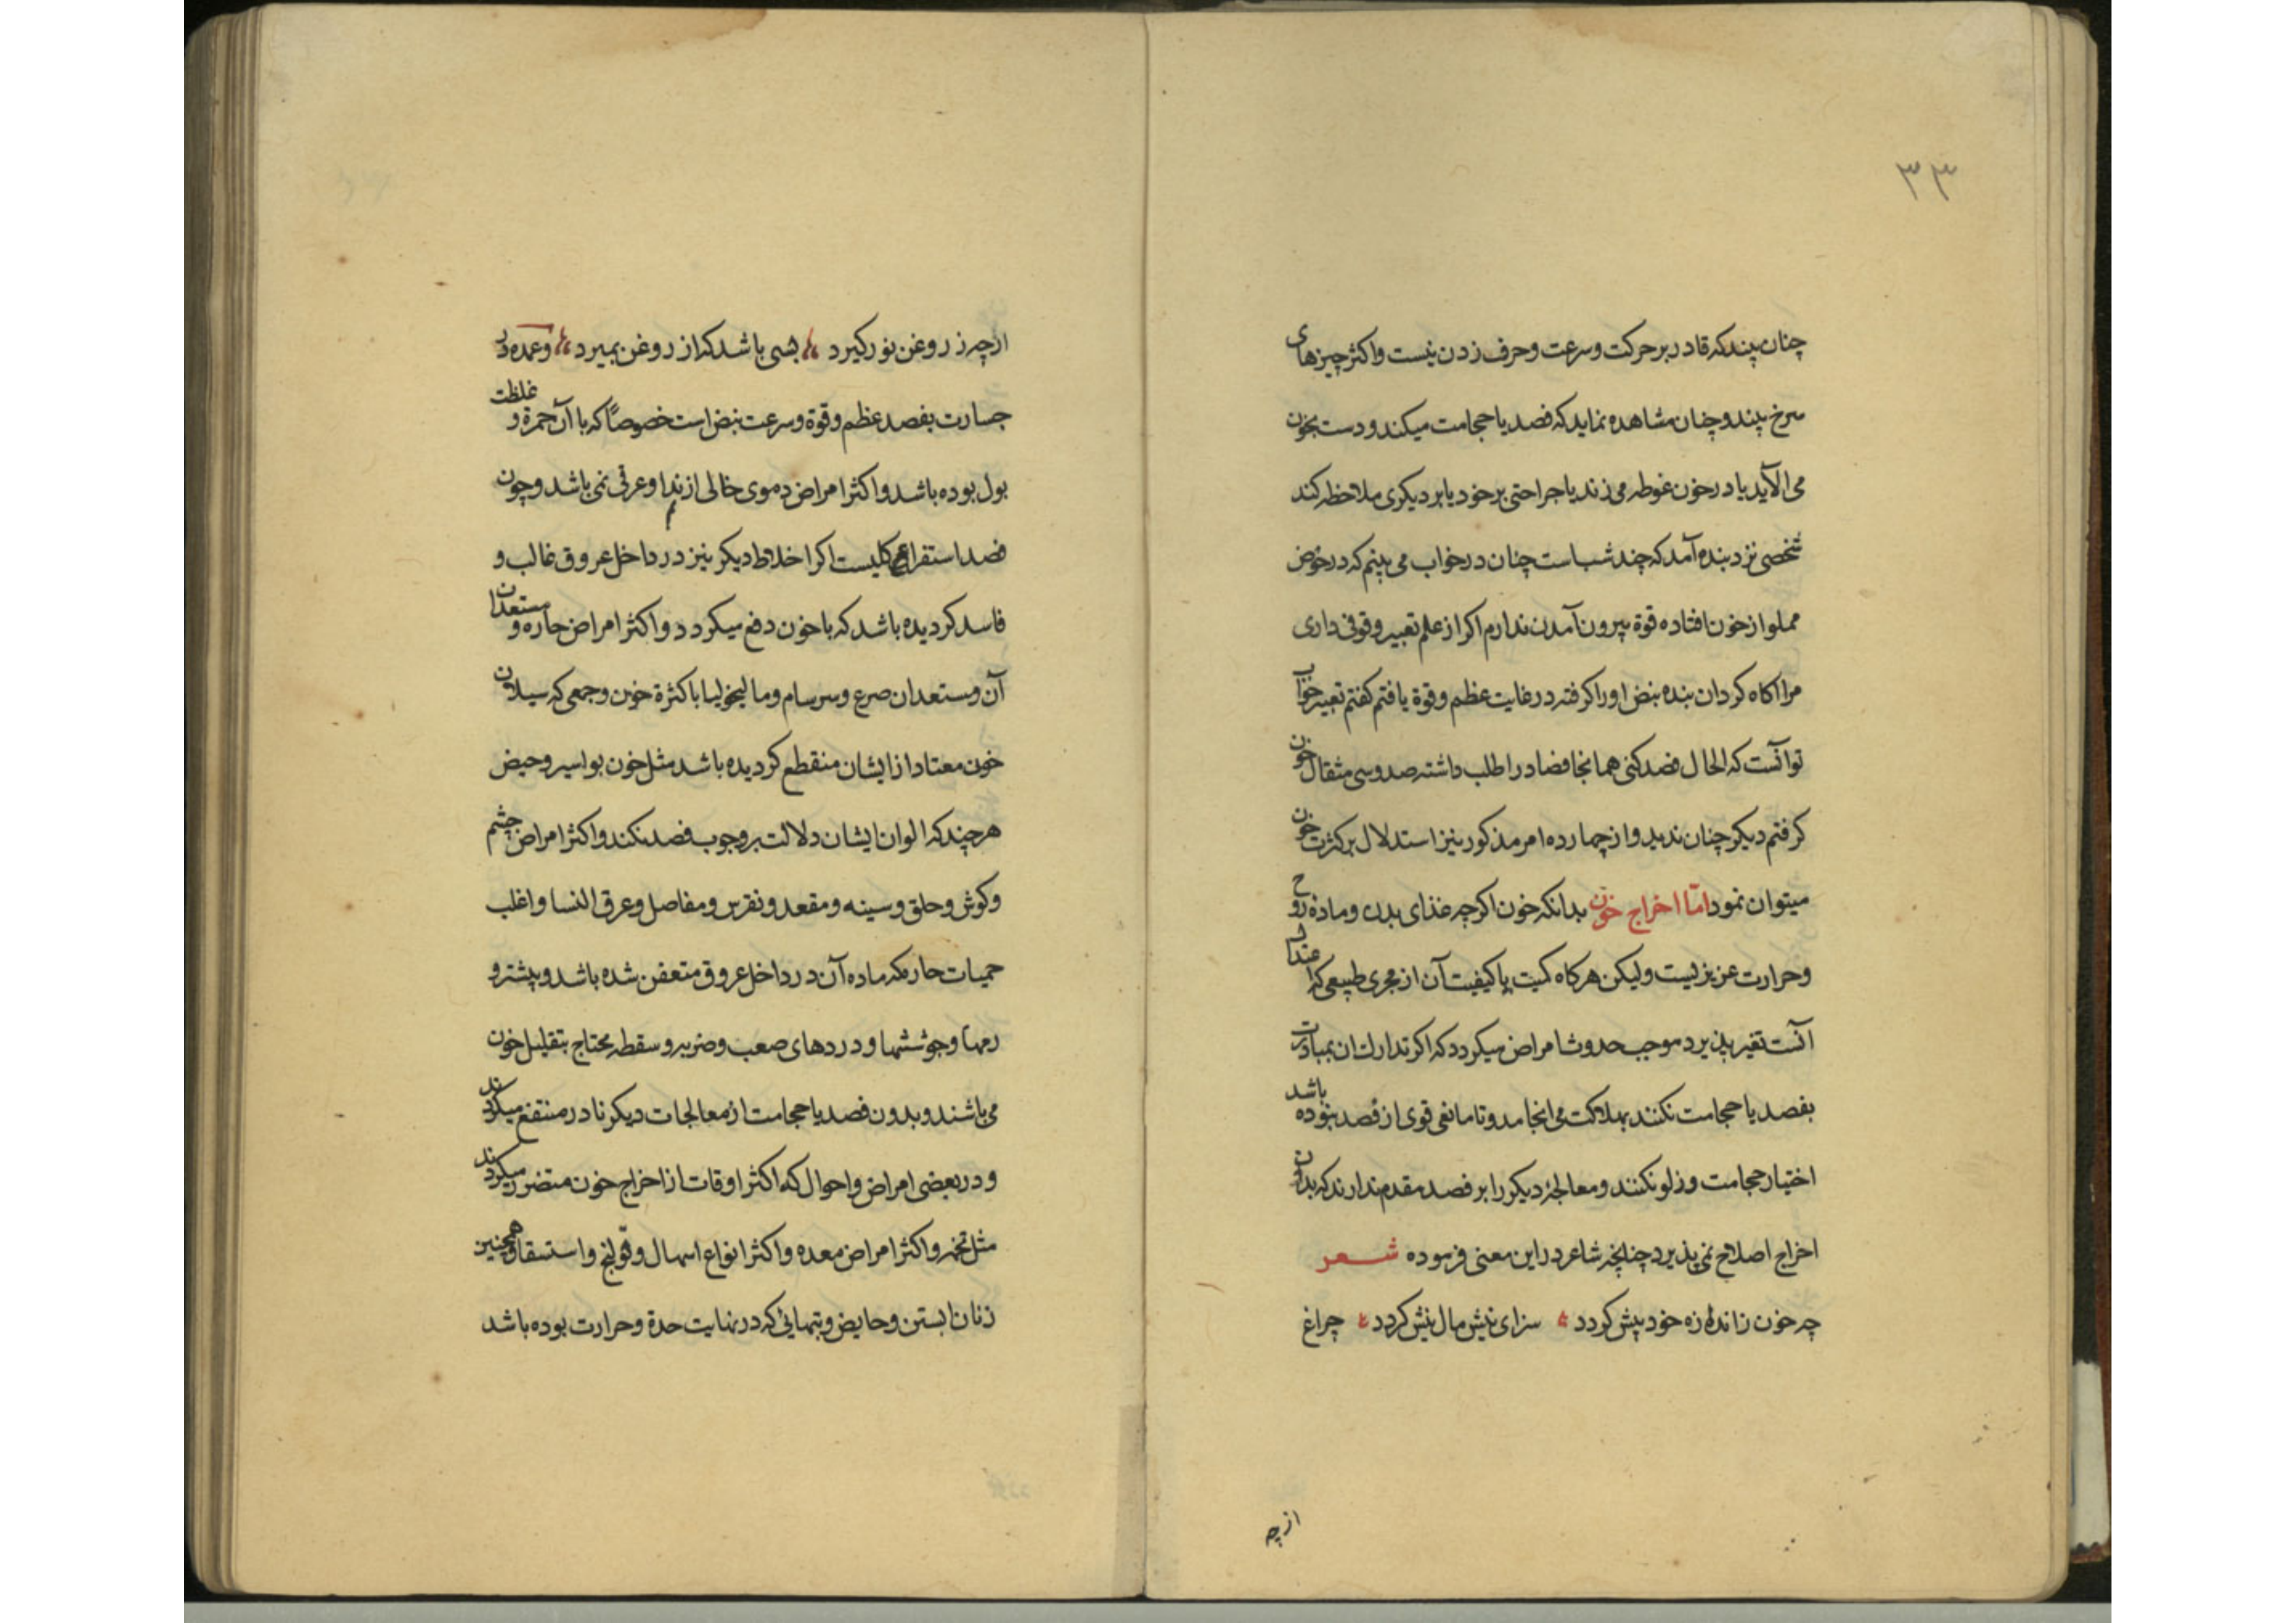 ۳۳
چنان بیند که قادر بر حرکت و سرعت و حرف زدن نیست و اکثر چیزهای
سرخ بیند و چنان مشاهده نماید که فصد یا حجامت میکند و دست بخون
می آلاید یا در خون غوطه می زند یا جراحتی بر خود یا بر دیکری ملاحظه کند
شخصی نزد بنده آمد که چند شب است چنان در خواب می بینم که در حوض
مملو از خون افتاده قوة بیرون آمدن ندارم اکر از علم تعبیر وقوفی داری
مرا اکاه کردان بنده نبض او را کرفته در غایت عظم و قوة یافتم کفتم تعبیر خواب
تو آنست که الحال فصد کنی همانجا فصاد را طلب داشته صد و سی مثقال خون
کرفتم دیکر چنان ندید و از چهارده امر مذکور نیز استدلال بر کثرت خون
میتوان نمود امّا اخراج خون بدانکه خون اکرچه غذای بدن و ماده روح
و حرارت عزیزیست ولیکن هرکاه کمیت یا کیفیت آن از مجری طبیعی که اعتدال
آنست تغیر پذیرد موجب حدوث امراض میکردد که اکر تدارک ان بمبادرت
بفصد یا حجامت نکنند بهلاکت می انجامد و تا مانعی قوی از فصد نبوده باشد
اختیار حجامت و زلو نکنند و معالجهٔ دیکر را بر فصد مقدم ندارند که بدون
اخراج اصلاح نمی پذیرد چنانچه شاعر در این معنی فرموده شعر
چه خون ز اندازه خود بیش کردد سزای نیش مال نیش کردد چراغ
از چه
ارچه ز روغن نور کیرد بسی باشد که از روغن بمیرد و عمده در
جسارت بفصد عظم و قوة و سرعت نبض است خصوصاً که با آن حمرة و غلظت
بول بوده باشد و اکثر امراض دموی خالی از نداوة عرقی نمی باشد و چون
فصد استفراغ کلیست اکر اخلاط دیکر نیز در داخل عروق غالب و
فاسد کردیده باشد که با خون دفع میکردد و اکثر امراض حاره و مستعدان
آن و مستعدان صرع و سرسام و مالیخولیا با کثرة خون و جمعی که سیلان
خون معتاد از ایشان منقطع کردیده باشد مثل خون بواسیر و حیض
هرچند که الوان ایشان دلالت بر وجوب فصد نکند و اکثر امراض چشم
و کوش و حلق و سینه و مقعد و نقرس و مفاصل و عرق النسا و اغلب
حمیات حاره که ماده آن در داخل عروق متعفن شده باشد و بیشتر و
رمها و جوششها و دردهای صعب و ضربه و سقطه محتاج بتقلیل خون
می باشند و بدون فصد یا حجامت از معالجات دیکر نادر منتفع میکردند
و در بعضی امراض و احوال که اکثر اوقات از اخراج خون متضرر میکردند
مثل تخمه و اکثر امراض معده و اکثر انواع اسهال و قولنج و استسقا و همچنین
زنان ابستن و حایض و تبهائی که در نهایت حدة و حرارت بوده باشد